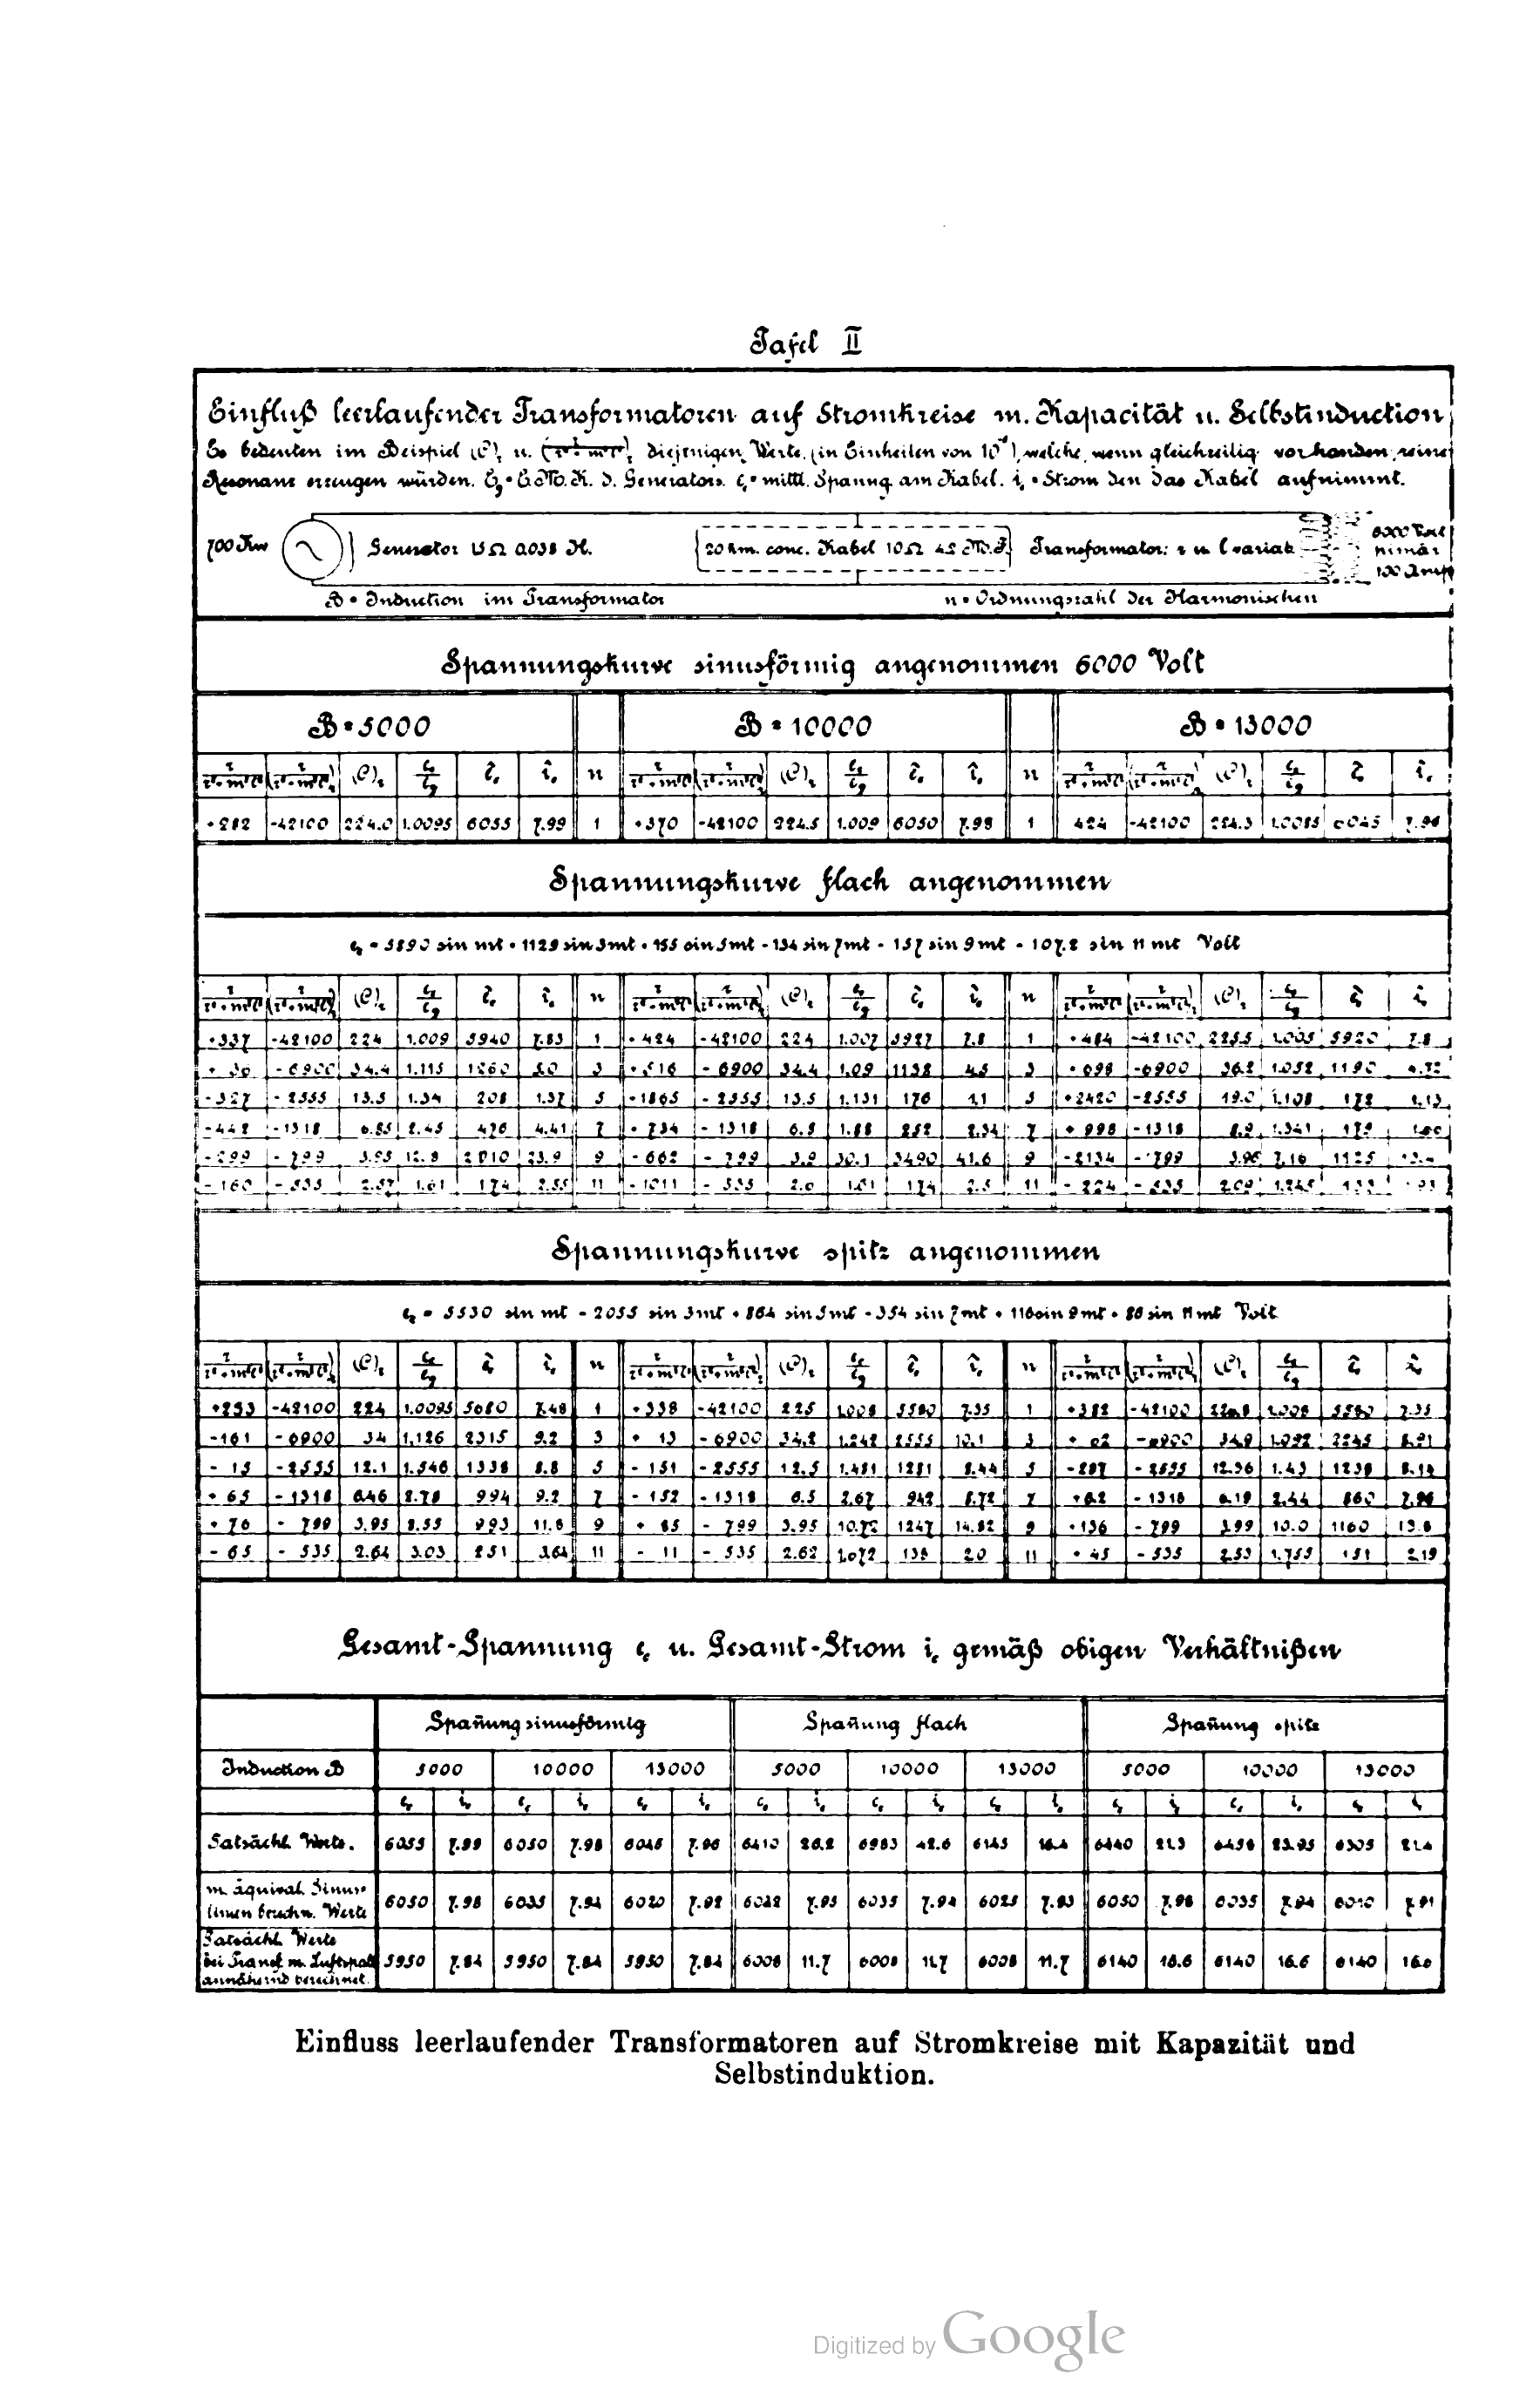 Tafel II
Einfluß leerlaufender Transformatoren auf Stromkreise m. Kapacität u. Selbstinduction
Es bedeuten im Beispiel (C)r u. diejenigen Werte, (in Einheiten von 10 ), welche, wenn gleichzeitig vorhanden, reine
Resonanz erzeugen würden. E.M.K. d. Generators. mittl. Spanng am Kabel. Strom den das Kabel aufnimmt.
700 Kw Generator 1,5 Ω 0.038 H. 20 km. conc. Kabel 10 Ω 4.2 M.F. Transformator: r u. l variab. 6000 Volt
primär
100 Amp
B = Induction im Transformator n = Ordnungszahl der Harmonischen
Spannungskurve sinusförmig angenommen 6000 Volt
B = 5000 B = 10000 B = 13000
+282 -42100 224.0 1.0095 6055 7.99 1 +370 -42100 224.5 1.009 6050 7.98 1 424 -42100 224.3 1.0085 6045 7.96
Spannungskurve flach angenommen
= 5890 sin mt + 1129 sin 3mt + 155 sin 5mt - 134 sin 7mt - 157 sin 9mt - 107.2 sin 11 mt Volt
+337 -42100 224 1.009 5940 7.83 1 +424 -42100 224 1.007 5927 7.8 1 +484 -42100 225.5 1.005 5920 7.8
+ 36 -6900 34.4 1.115 1260 5.0 3 +516 -6900 34.4 1.09 1138 4.5 3 +698 -6900 36.2 1.052 1190 4.72
-327 -2555 13.5 1.34 208 1.37 5 -1865 -2555 13.5 1.131 176 1.1 5 +2420 -2555 19.0 1.108 172 1.13
-442 -1318 6.85 2.45 476 4.41 7 +734 -1318 6.5 1.88 252 2.34 7 +998 -1318 8.9 1.341 179
-299 -799 3.95 12.8 2010 23.9 9 -662 -799 3.9 30.1 3490 41.6 9 -2134 -799 3.96 7.16 1125 13.4
-160 -535 2.57 1.61 174 2.55 11 -1011 -535 2.6 1.61 174 2.5 11 -224 -535 2.09 1.245 133
Spannungskurve spitz angenommen
= 5530 sin mt - 2055 sin 3mt + 864 sin 5mt - 354 sin 7mt + 116 sin 9mt + 86 sin 11 mt Volt
+233 -42100 224 1.0095 5680 7.48 1 +338 -42100 225 1.008 5580 7.35 1 +382 -42100 1.008 5580 7.35
-161 -6900 34 1.126 2315 9.2 3 + 13 -6900 34.2 1.242 2555 10.1 3 + 62 -6900 34.9 1.092 2245 8.91
- 15 -2555 12.1 1.546 1338 8.8 5 -151 -2555 12.5 1.481 1281 8.44 5 -287 -2555 12.96 1.43 1238 8.14
+ 65 -1318 6.46 2.78 994 9.2 7 -152 -1318 6.5 2.67 942 8.72 7 +62 -1318 6.19 2.44 860 7.96
+ 76 - 799 3.95 8.55 993 11.8 9 + 85 - 799 3.95 10.72 1247 14.82 9 +136 -799 3.99 10.0 1160 13.8
- 65 - 535 2.64 3.03 251 3.64 11 - 11 - 535 2.62 1.072 138 2.0 11 + 45 -535 2.53 1.755 151 2.19
Gesamt-Spannung u. Gesamt-Strom gemäß obigen Verhältnißen
Spañung sinusförmig Spañung flach Spañung spitz
Induction B 5000 10000 13000 5000 10000 13000 5000 10000 13000
Tatsächl. Werte. 6055 7.99 6050 7.98 6046 7.96 6410 26.2 6983 42.6 6145 16.4 6440 21.3 6456 23.95 6305 21.4
m. äquival. Sinus-
linien berechn. Werte 6050 7.98 6035 7.94 6020 7.92 6022 7.95 6035 7.94 6025 7.93 6050 7.98 6035 7.94 6010 7.91
Tatsächl. Werte
bei Transf. m. Luftspalt 5950 7.84 5950 7.84 5950 7.84 6008 11.7 6008 11.7 6008 11.7 6140 16.6 6140 16.6 6140 16.6
annähernd berechnet.
Einfluss leerlaufender Transformatoren auf Stromkreise mit Kapazität und
Selbstinduktion.
Digitized by Google